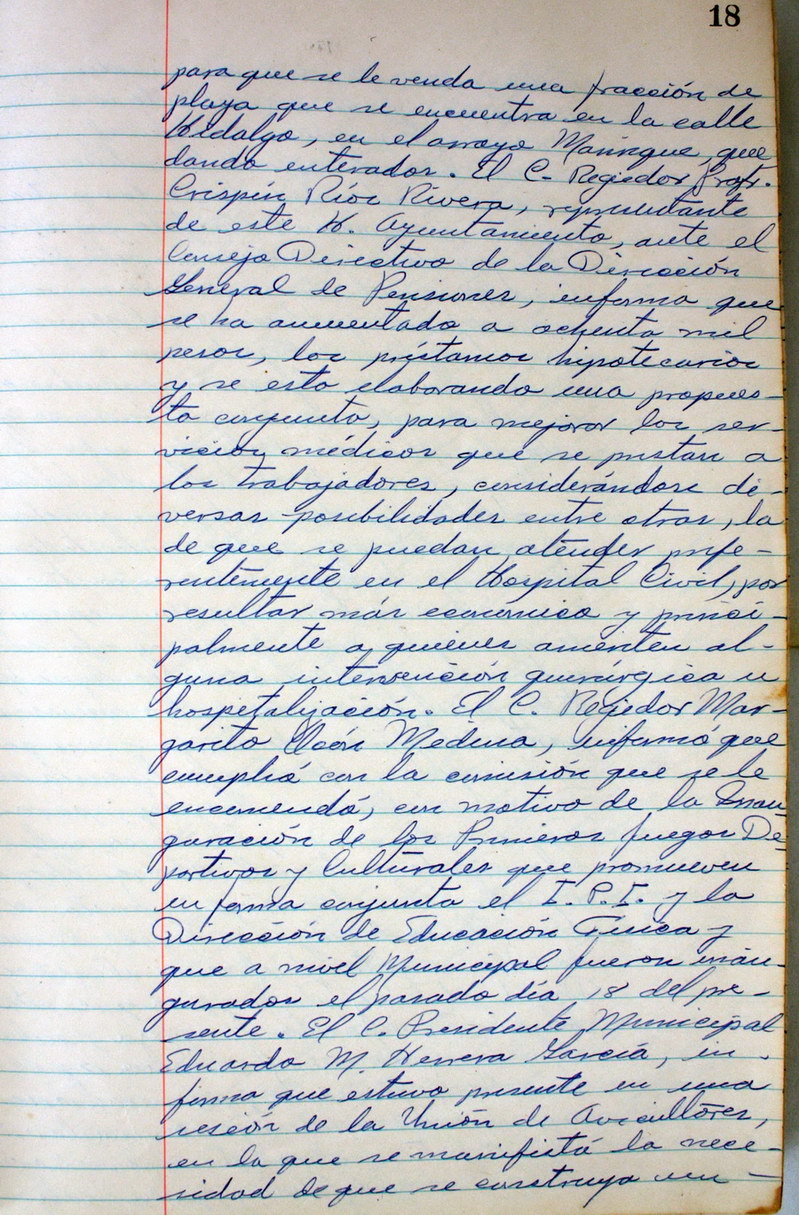 18
para que se le venda una fracción de
playa que se encuentra en la calle
Hidalgo, en el arroyo Manrigue, que
dando enterados. El C. Regiedor Profr.
Crispín Ríos Rivera, representante
de este H. Ayuntamiento, ante el
Consejo Directivo de la Dirección
General de Pensiones, informa que
se ha aumentado a ochenta mil
pesos, los préstamos hipotecarios
y se esta elaborando una propues-
ta conjunta, para mejorar los ser-
vicios médicos que se prestan a
los trabajadores, considerándose di-
versas posibilidades entre otras, la
de que se puedan atender prefe-
rentemente en el Hospital Civil, por
resultar más económico y princi-
palmente a quienes ameriten al-
guna intervención quirúrgica u
hospitalización. El C. Regiedor Mar-
garito León Medina, informa que
cumplió con la comisión que se le
encomendó, con motivo de la Inau
guración de los Primeros Juegos De-
portivos y Culturales que promueven
en forma conjunta el I. P. I. y la
Dirección de Educación Física y
que a nivel Municipal fueron inau-
gurados el pasado día 18 del pre-
sente. El C. Presidente Municipal
Eduardo M. Herrera García, in-
forma que estuvo presente en una
sesión de la Unión de Avicultores,
en la que se manifistó la nece-
sidad de que se construya un -